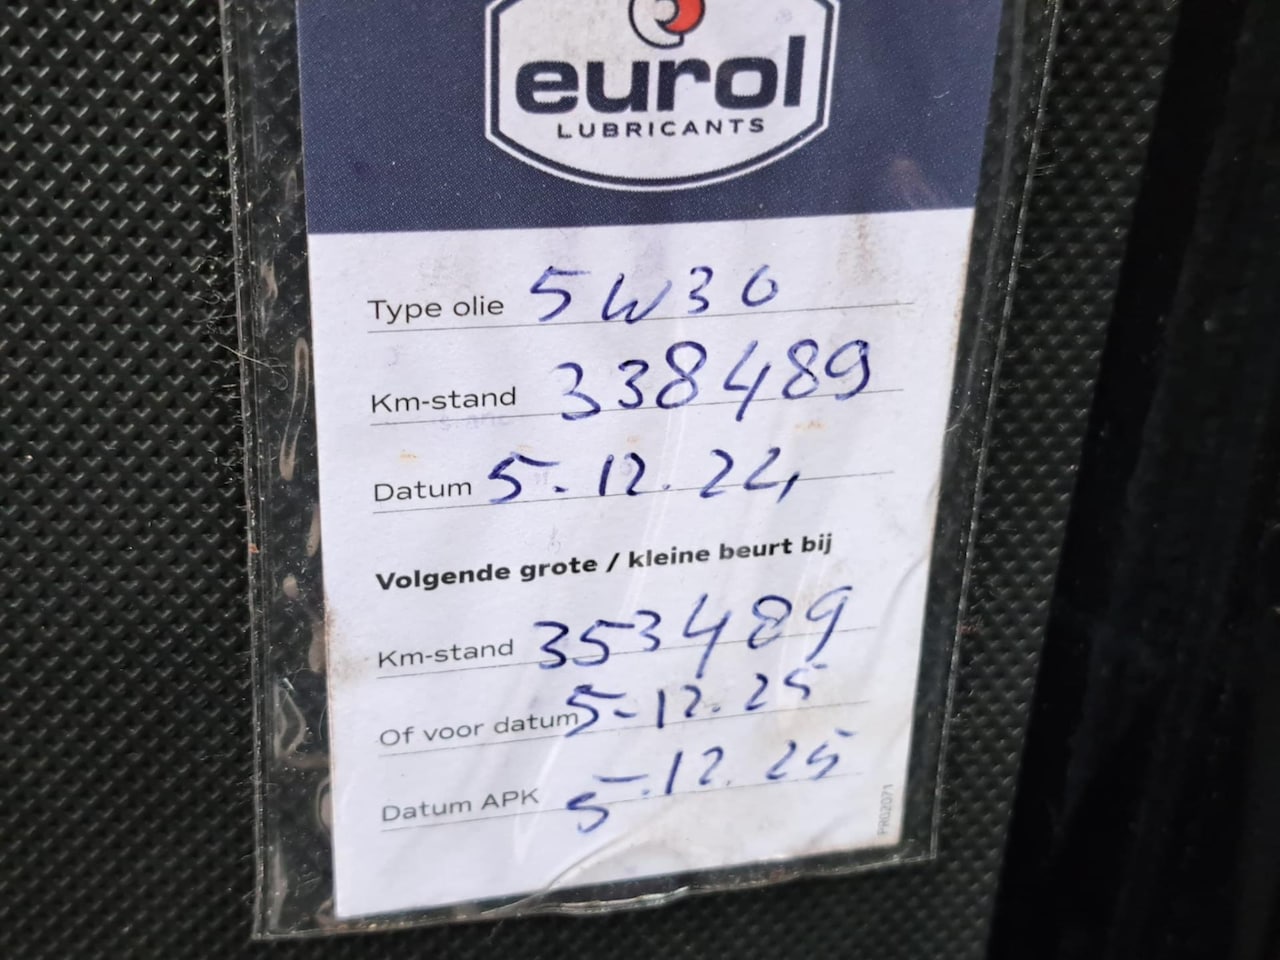 eurol
LUBRICANTS
Type olie 5W30
Km-stand 338489
Datum 5-12.22,
Volgende grote / kleine beurt bij
Km-stand 353489
Of voor datum 5-12.25
Datum APK 5-12.25
PR02071